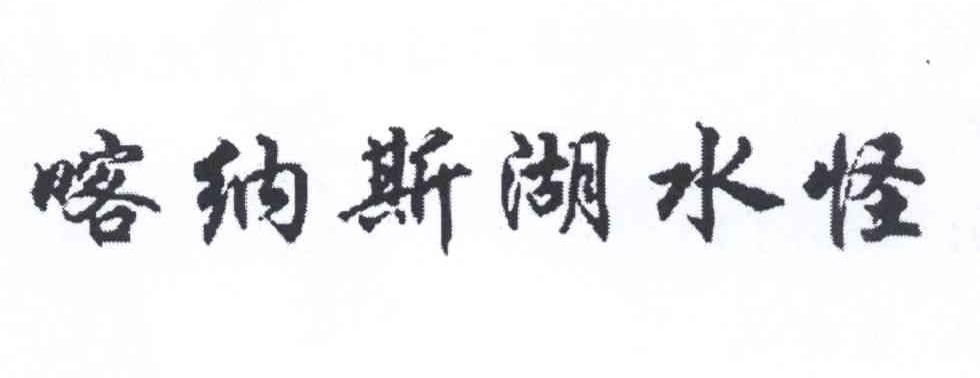 喀纳斯湖水怪